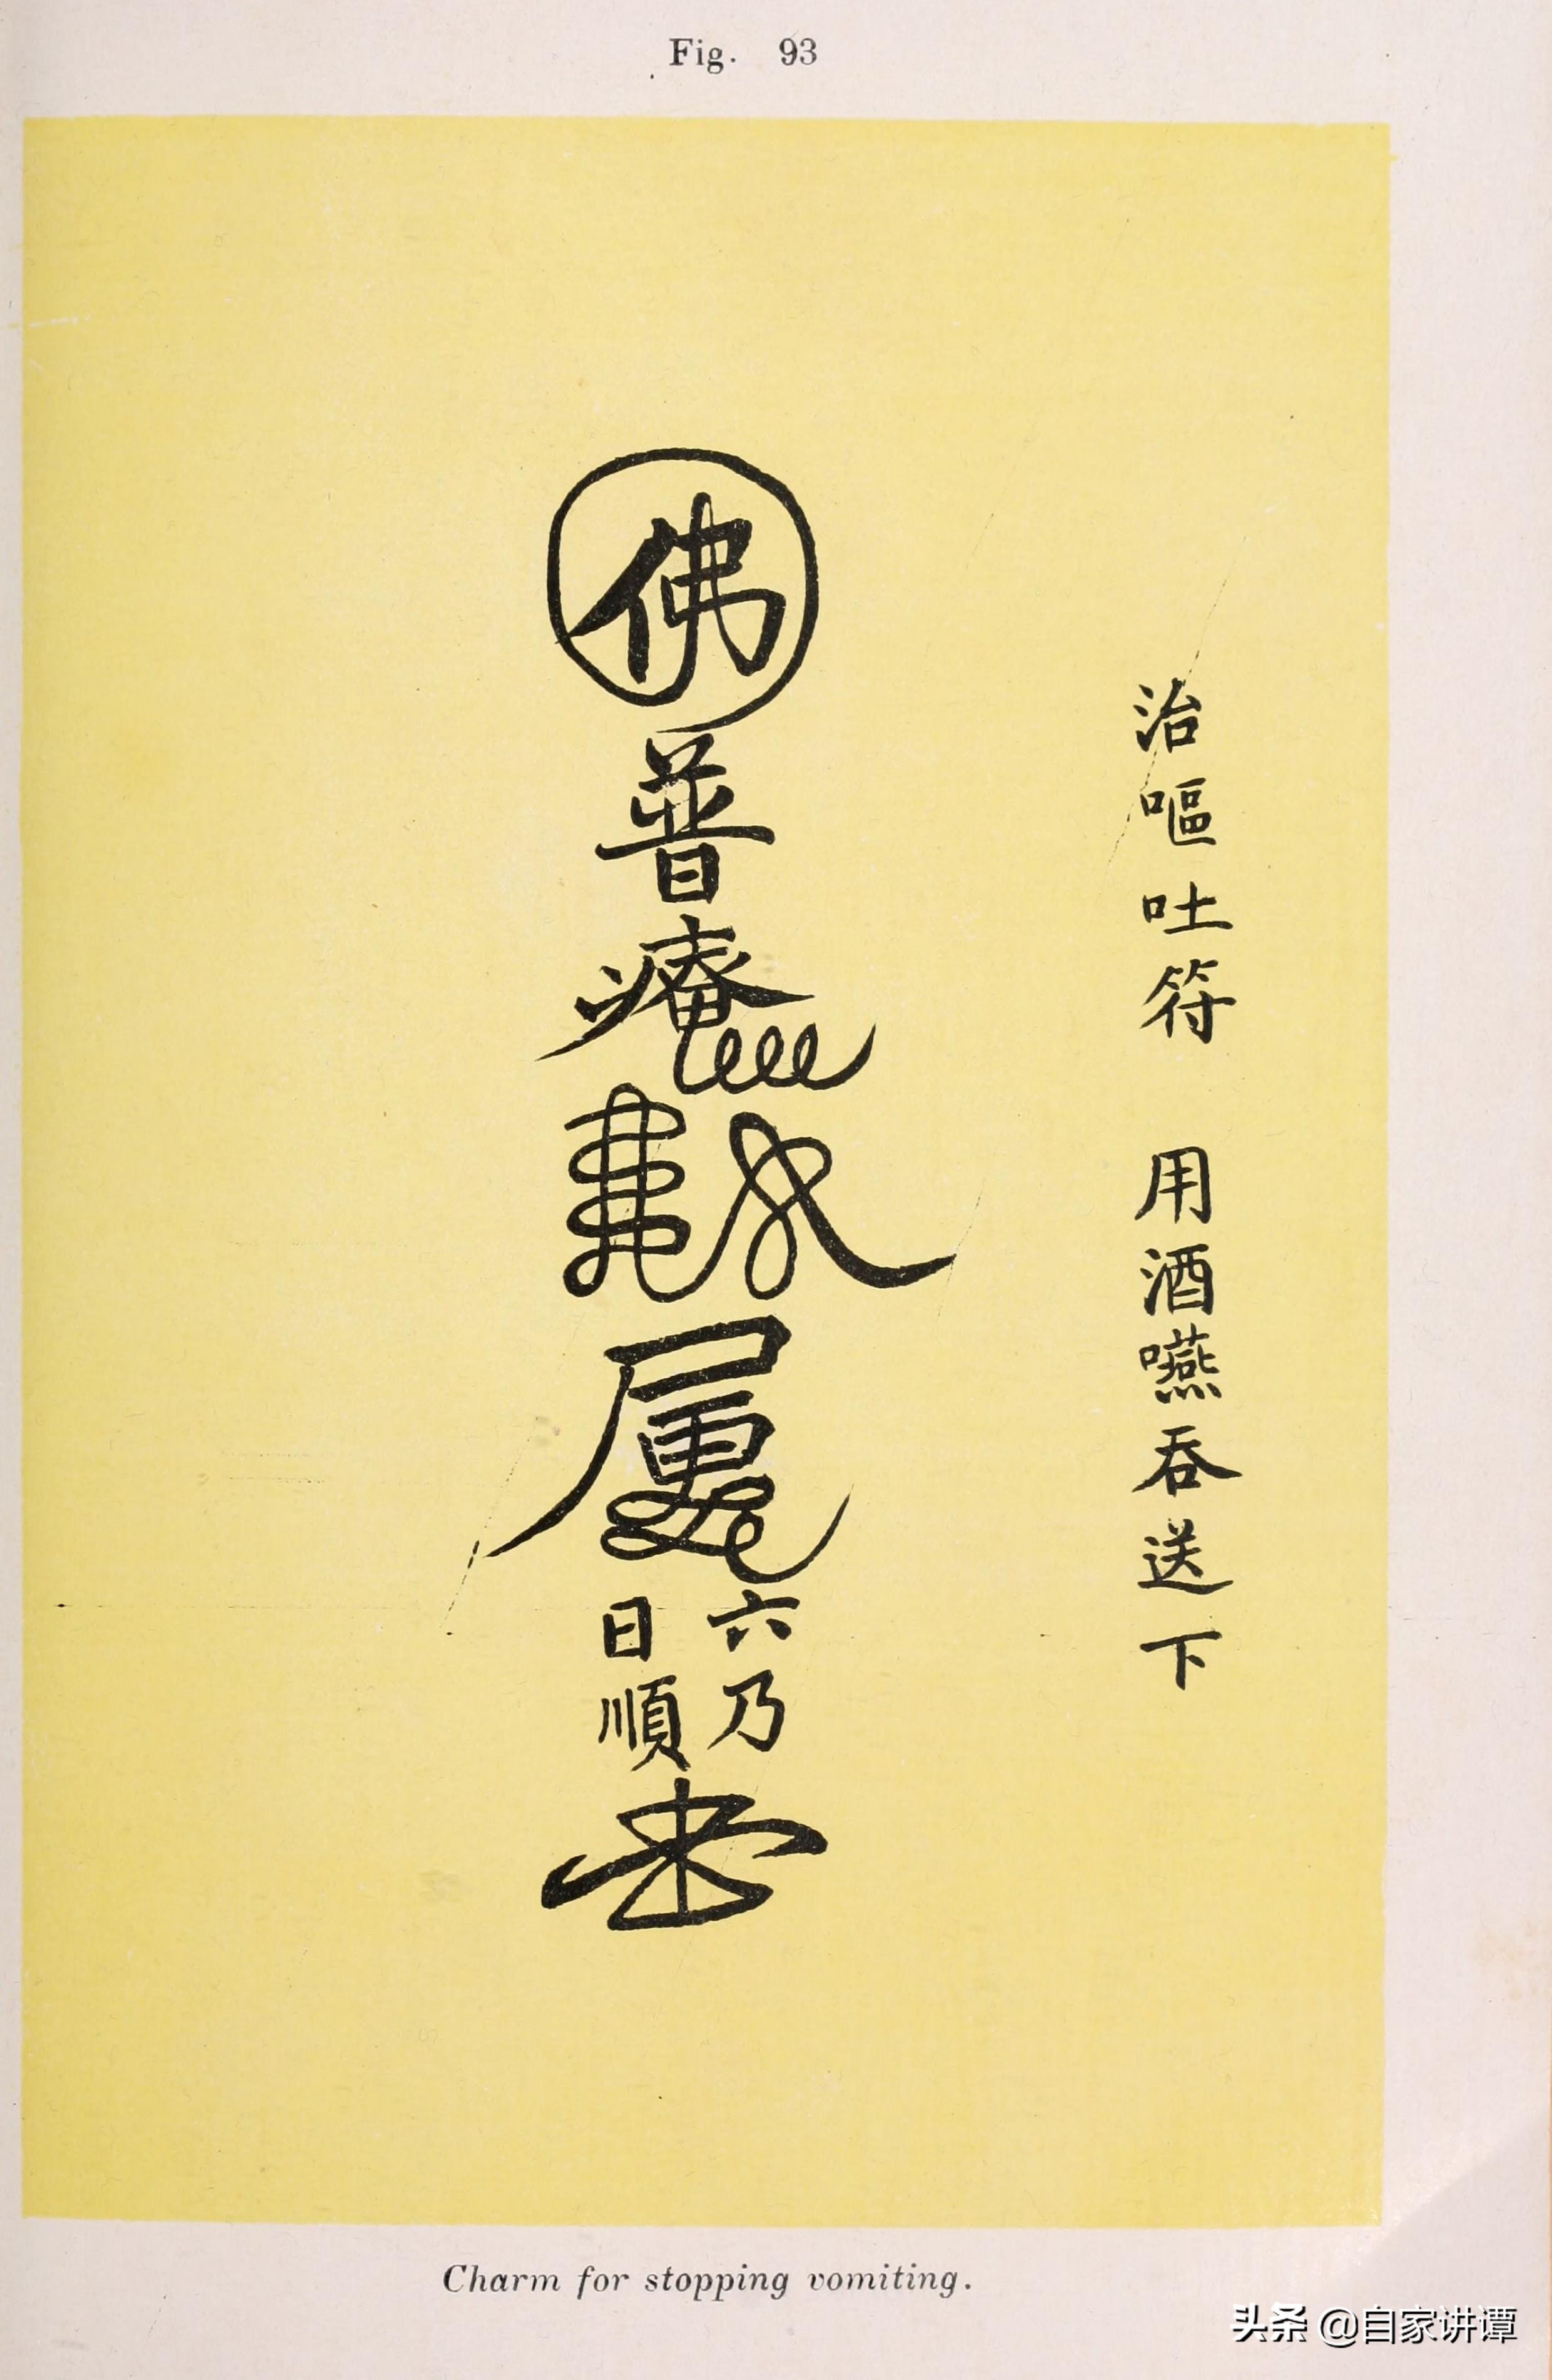 Fig. 93
治嘔吐符 用酒嚥吞送下
佛
普
六乃
日順
Charm for stopping vomiting.
头条 @自家讲谭